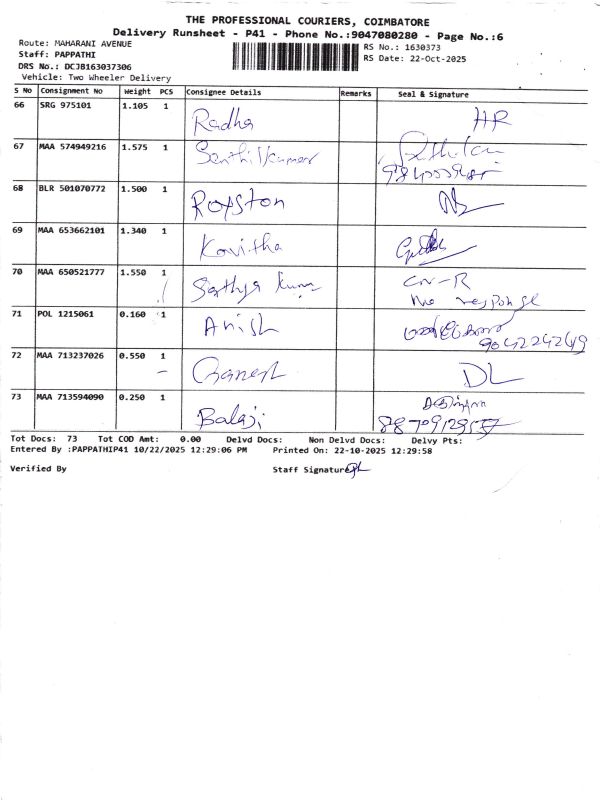 THE PROFESSIONAL COURIERS, COIMBATORE
Delivery Runsheet - P41 - Phone No.:9047080280 - Page No.:6
Route: MAHARANI AVENUE
Staff: PAPPATHI
DRS No.: DCJB163037306
Vehicle: Two Wheeler Delivery
RS No.: 1630373
RS Date: 22-Oct-2025
S No Consignment No Weight PCS Consignee Details Remarks Seal & Signature
66 SRG 975101 1.105 1 Radha HR
67 MAA 574949216 1.575 1 Senthilkumar
68 BLR 501070772 1.500 1 Royston
69 MAA 653662101 1.340 1 Kavitha
70 MAA 650521777 1.550 1 Sathya Kumar CN-R
No response
71 POL 1215061 0.160 1 Anish
9042242649
72 MAA 713237026 0.550 1 Ganesh DL
73 MAA 713594090 0.250 1 Balaji
Tot Docs: 73 Tot COD Amt: 0.00 Delvd Docs: Non Delvd Docs: Delvy Pts:
Entered By :PAPPATHIP41 10/22/2025 12:29:06 PM Printed On: 22-10-2025 12:29:58
Verified By Staff Signature